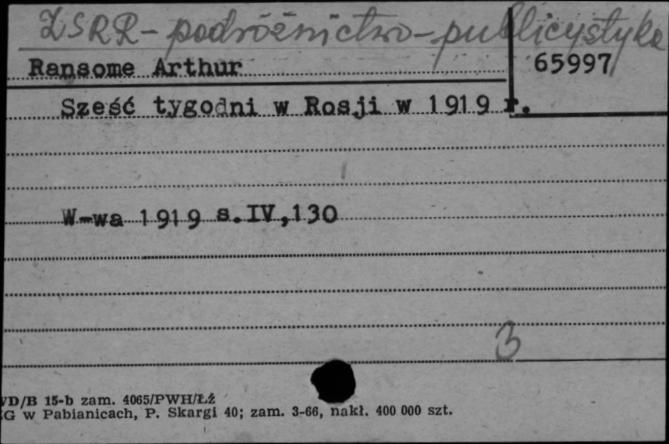 ZSRR - podróżnictwo - publicystyka
Ransome Arthur
65997
Sześć tygodni w Rosji w 1919 r.
W-wa 1919 s.IV,130
3
VD/B 15-b zam. 4065/PWH/Łź
G w Pabianicach, P. Skargi 40; zam. 3-66, nakł. 400 000 szt.